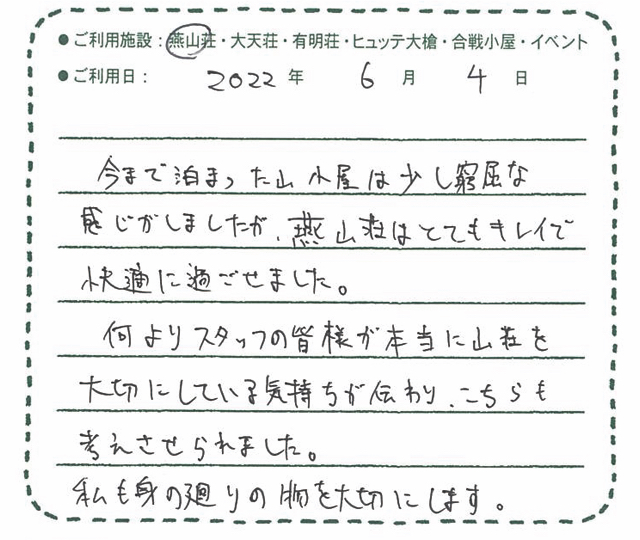 ●ご利用施設：燕山荘・大天荘・有明荘・ヒュッテ大槍・合戦小屋・イベント
●ご利用日： 2022 年 6 月 4 日
今まで泊まった山小屋は少し窮屈な
感じがしましたが、燕山荘はとてもキレイで
快適に過ごせました。
何よりスタッフの皆様が本当に山荘を
大切にしている気持ちが伝わり、こちらも
考えさせられました。
私も身の廻りの物を大切にします。